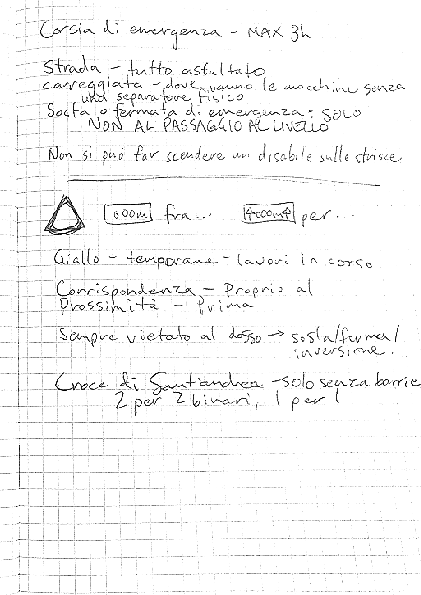 Corsia di emergenza - MAX 3h
Strada - tutto asfaltato
carreggiata - dove vanno le macchine senza
una separatore fisico
Sosta o fermata di emergenza: SOLO
NON AL PASSAGGIO AL LIVELLO
Non si può far scendere un disabile sulle strisce.
fra... per...
Giallo - temporane - lavori in corso
Corrispondenza - Proprio al
Prossimità - Prima
Sempre vietato al dosso → sosta/ferma/
inversione.
Croce di Sant'andrea - solo senza barrie
2 per 2 binari, 1 per 1